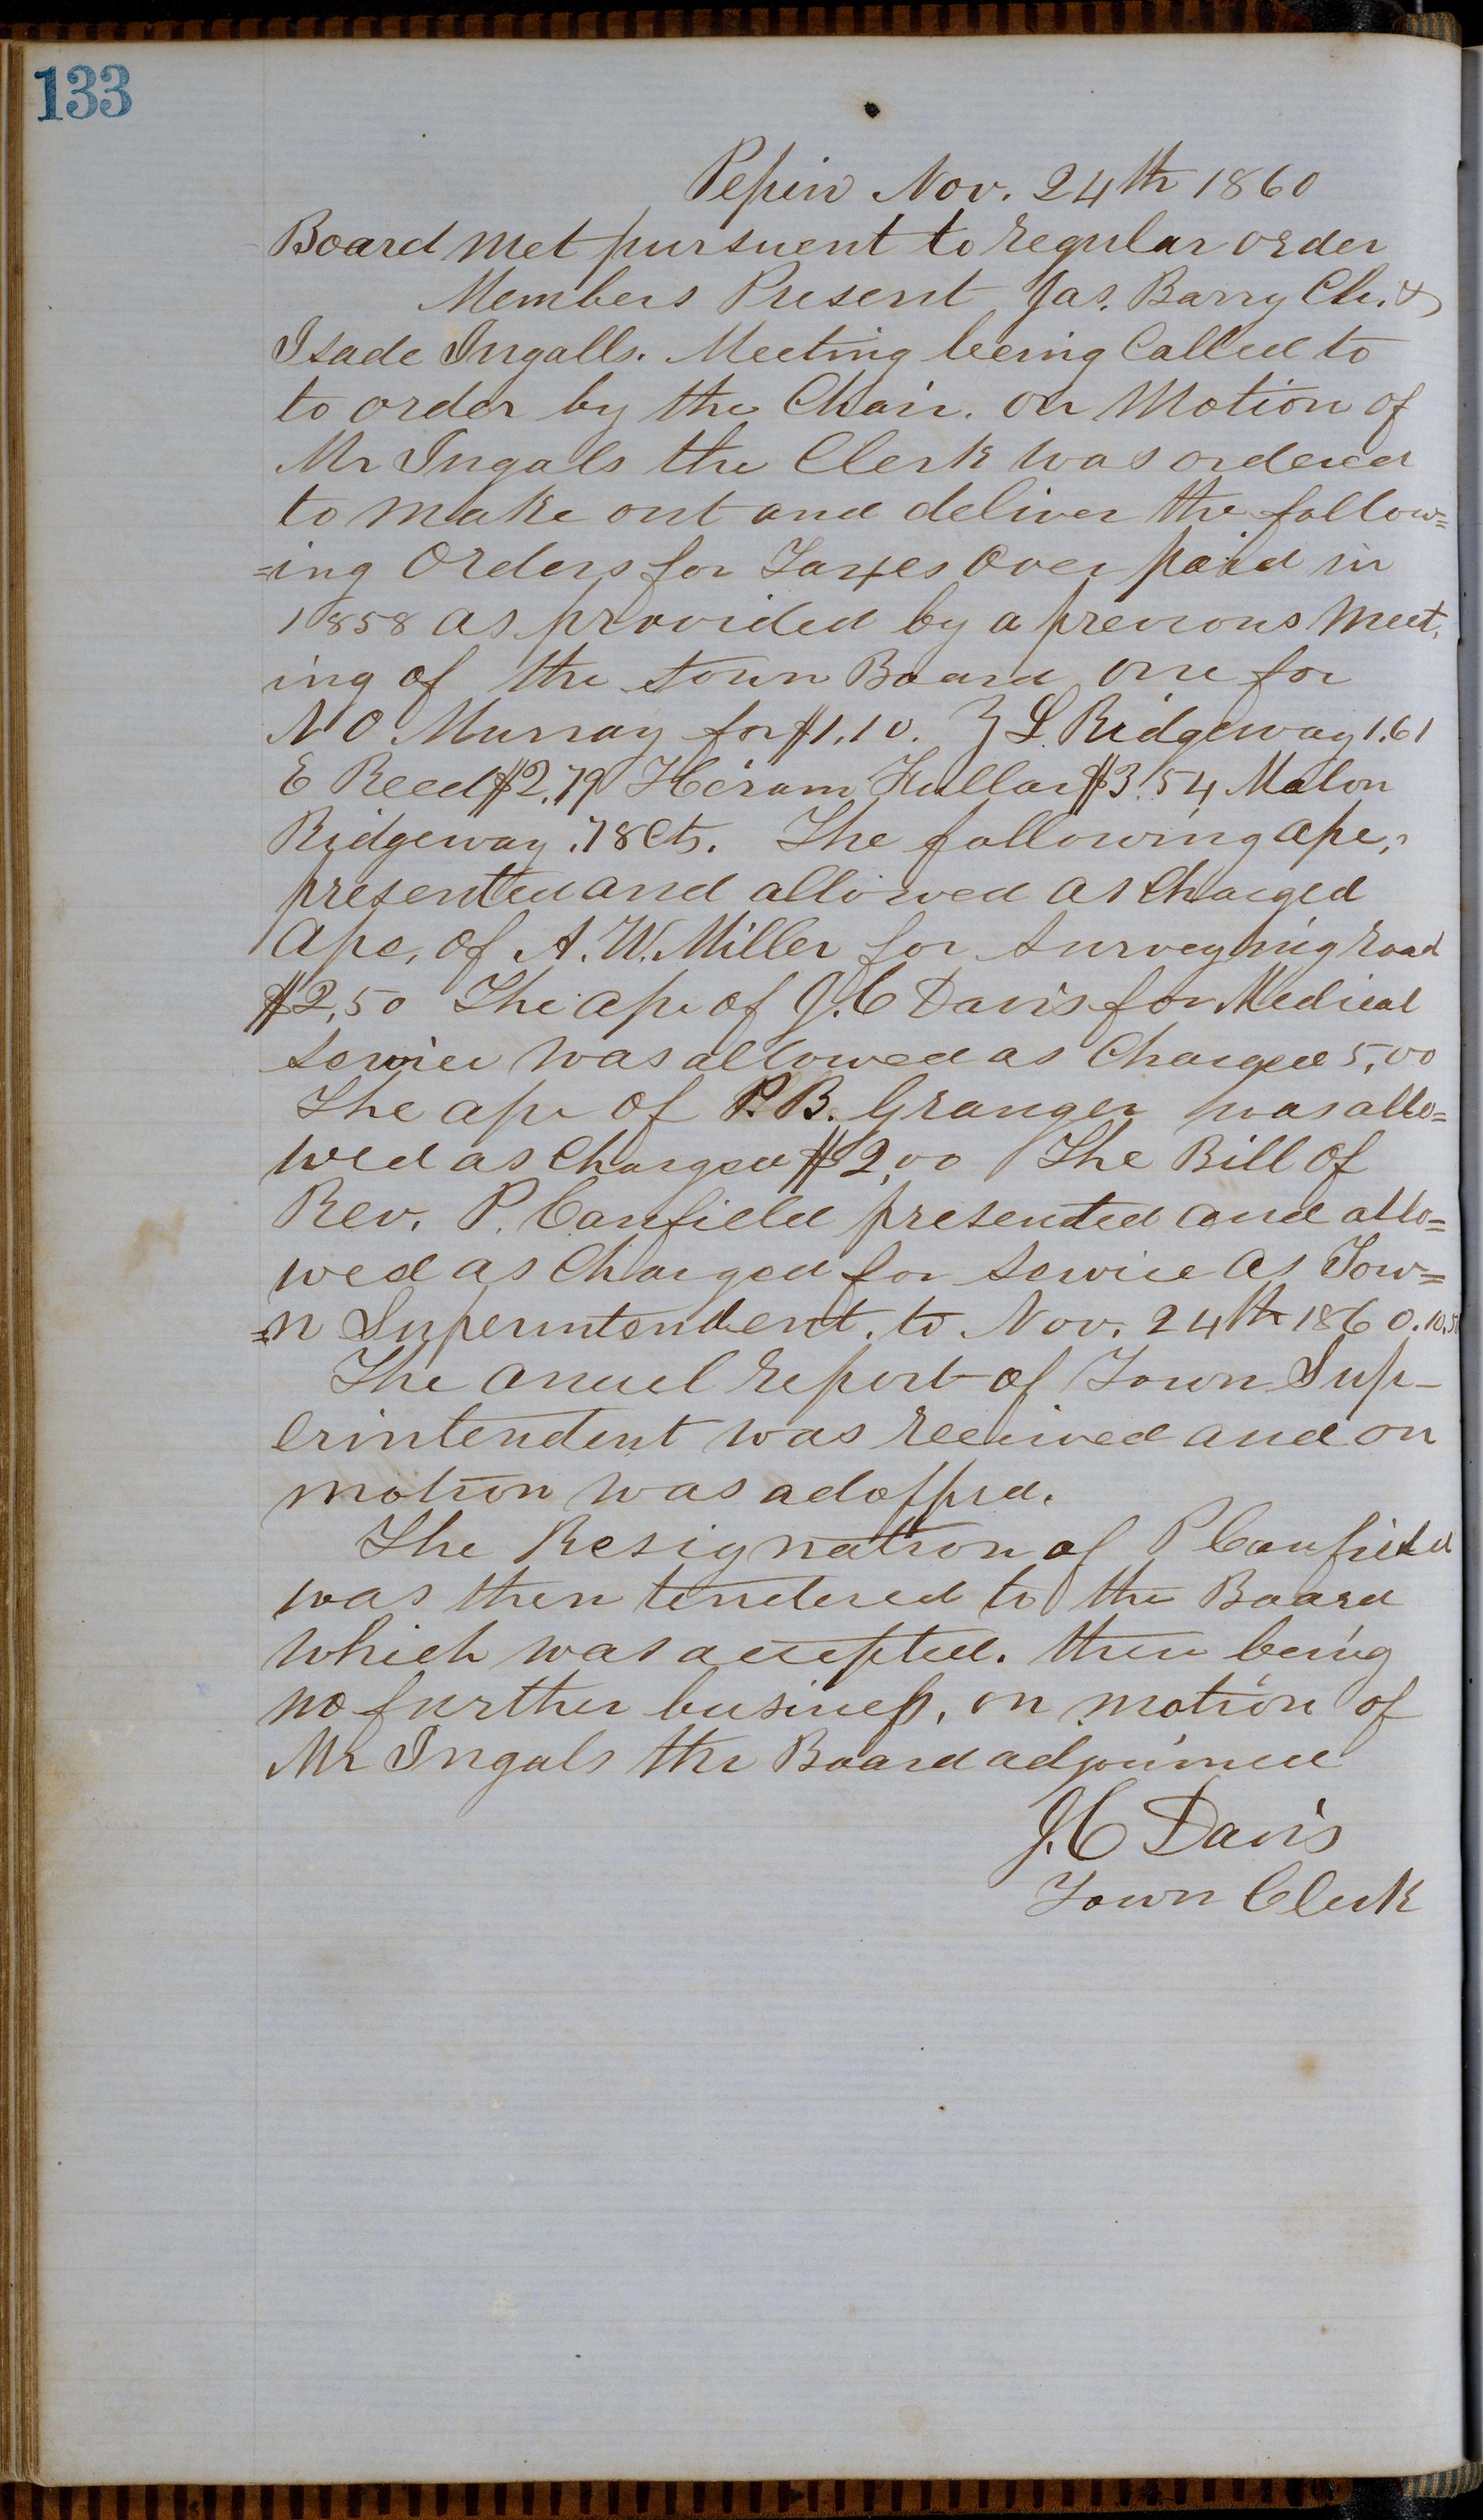 133
Pepin Nov. 24th 1860
Board met pursuent to regular order
Members Present Jas. Barry Ch. &
Isade Ingalls. Meeting being Called to
to order by the Chair. on Motion of
Mr Ingals the Clerk was ordered
to make out and deliver the follow=
=ing Orders for Taxes Over paid in
1858 as provided by a previous Meet,
ing of the town Board one for
N O. Murray for $1,10. Z L. Ridgeway 1.61
E Reed $2,79 Hiram Fullar $3.54, Malon
Ridgeway .78 Cts. The following apc,
presented and allowed as Charged
apc, of A. W. Miller for surveying road
$2,50 The apc of J. C Davis for Medical
service was allowed as Charged 5,00
The apc of P. B. Granger was allo=
wed as Charged $2,00 The Bill of
Rev. P. Canfield presented and allo=
wed as Charged for service as Tow=
=n Superintendent. to Nov. 24th 1860. 10,50
The anuel report of Town Sup-
erintendent was received and on
motion was adoppted.
The Resignation of P Canfield
was then tendered to the Board
which was accepted. there being
no further business, on motion of
Mr Ingals the Board adjourned
J. C Davis
Town Clerk